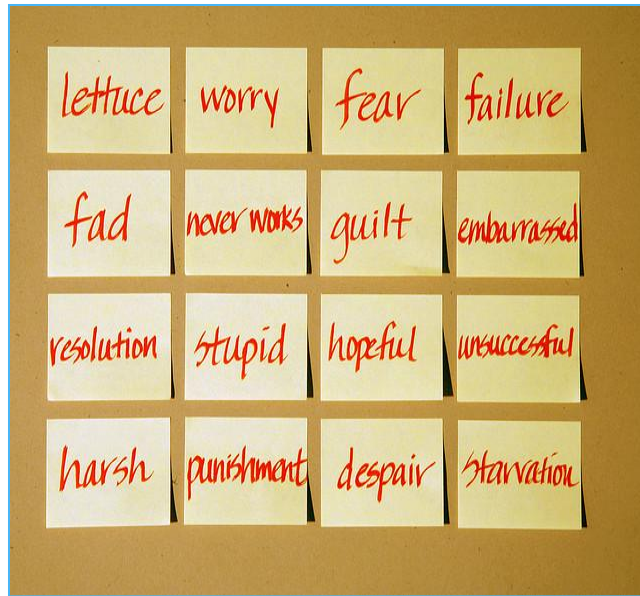 lettuce worry fear failure
fad never works guilt embarrassed
resolution stupid hopeful unsuccessful
harsh punishment despair starvation